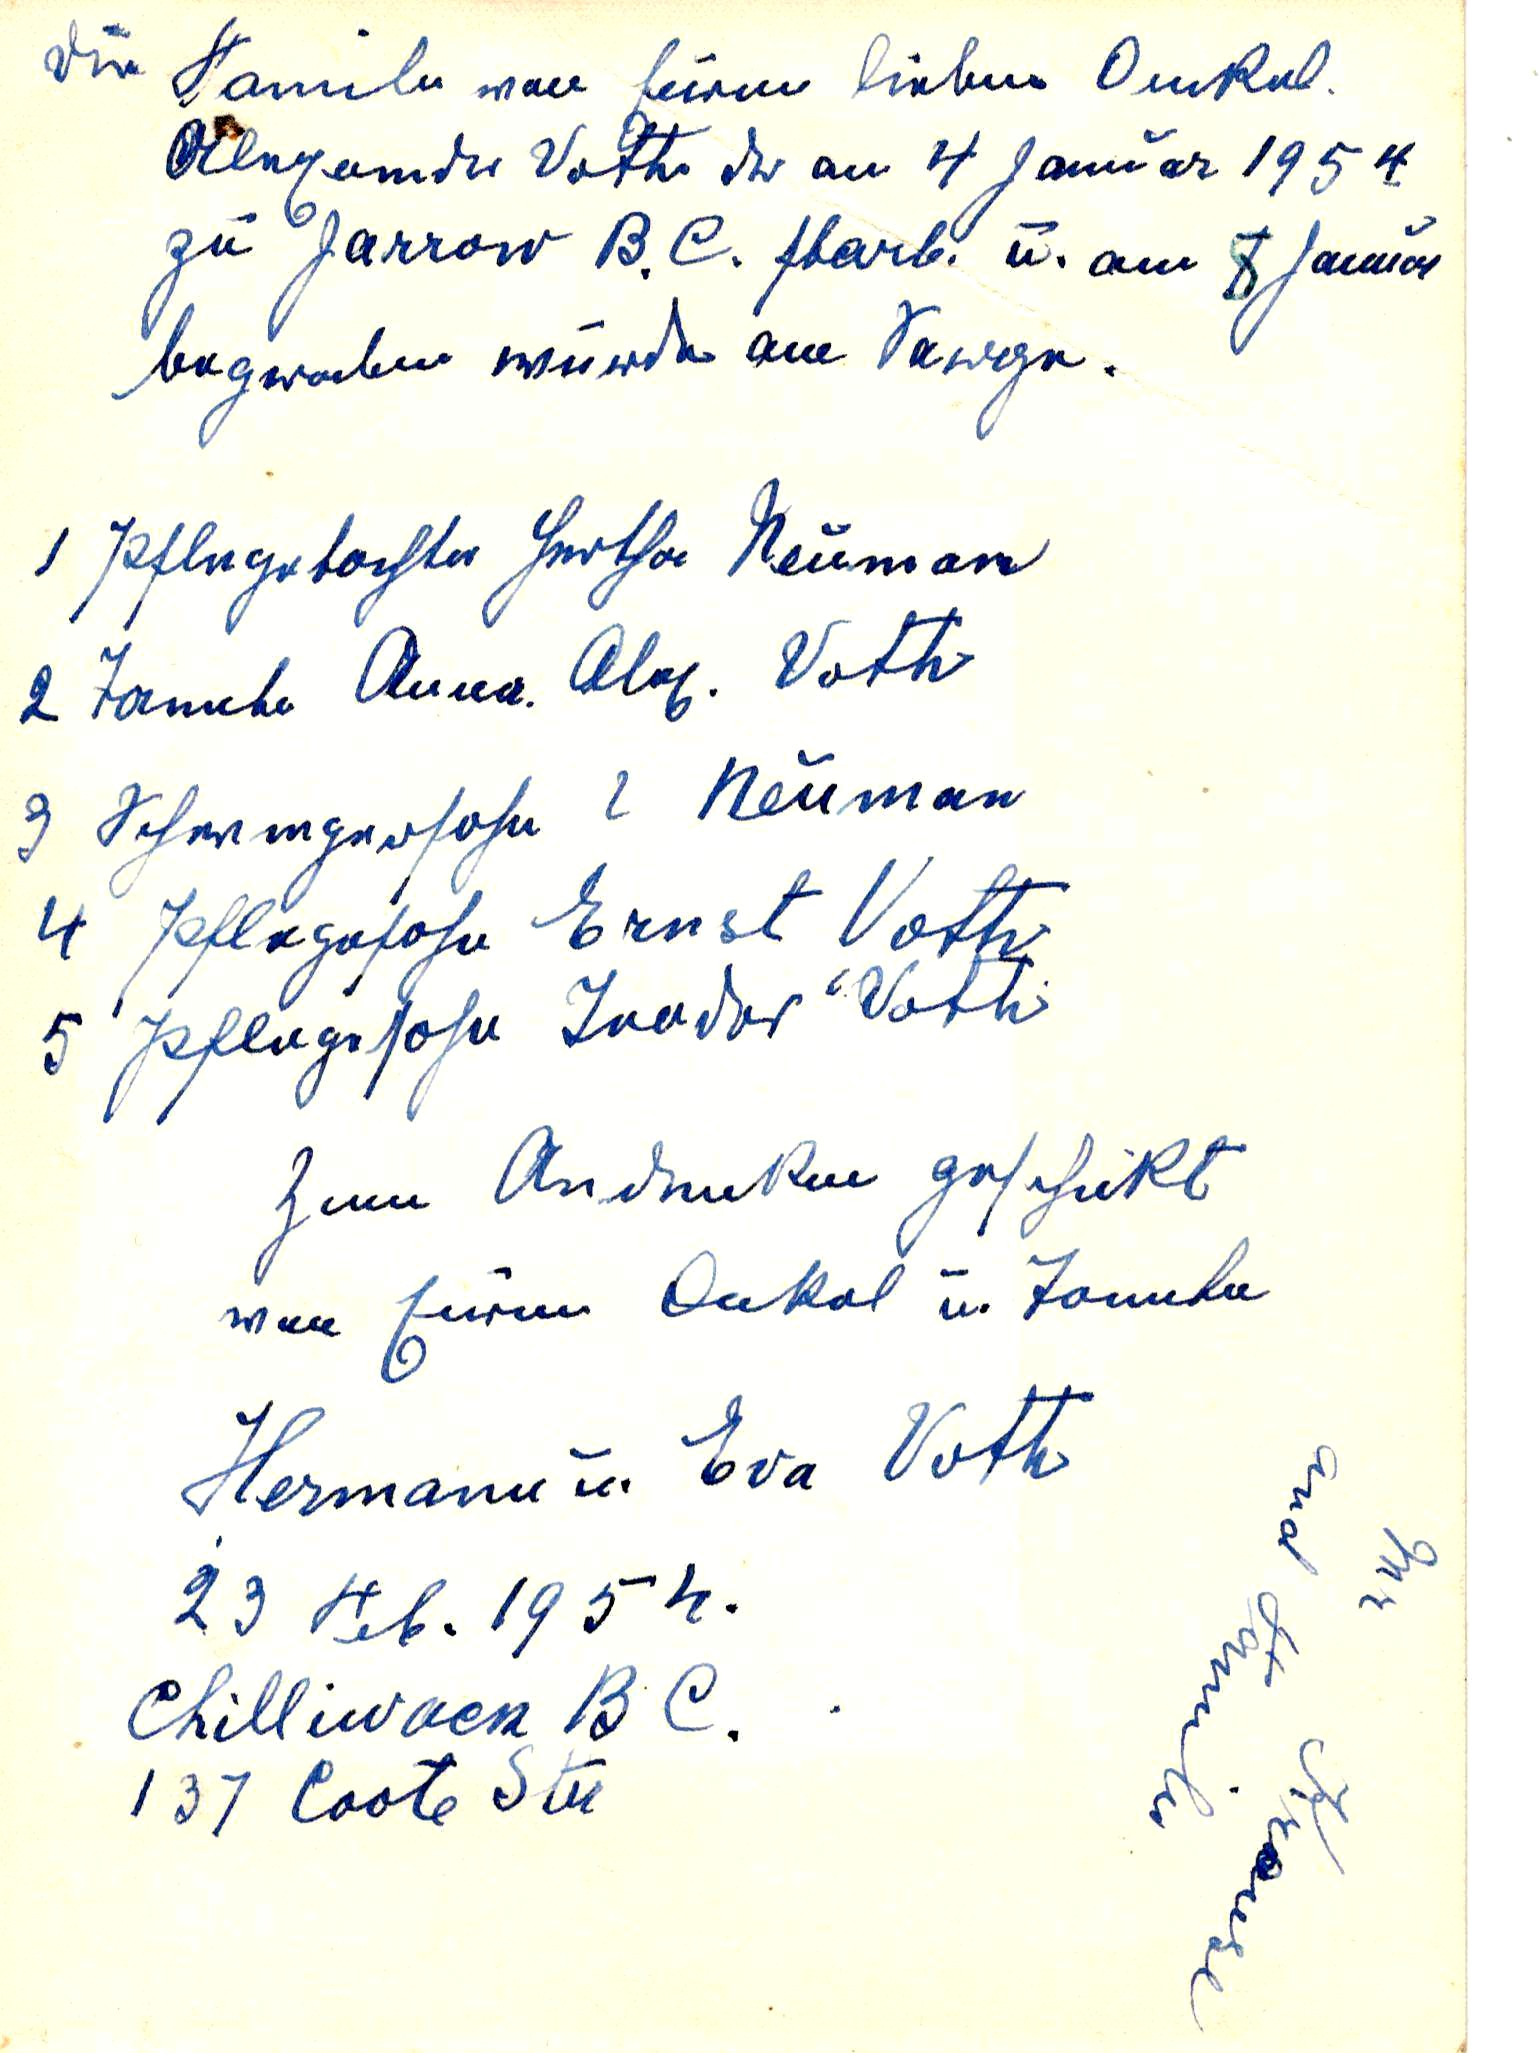 Die Familie von Euren lieben Onkel.
Alexander Voth der am 4 Januar 1954
zu Jarrow B.C. starb. u. am 8 Januar
begraben wurde am Sarge.
1 Pflegetochter Hertha Neuman
2 Tante Anna. Alex. Voth
3 Schwiegersohn ? Neuman
4 Pflegesohn Ernst Voth
5 Pflegesohn Teodor Voth
Zum Andenken geschikt
von Euren Onkel u. Tante
Hermann u. Eva Voth
23 Feb. 1954.
Chilliwack B C.
137 Coote Str
Krause
and Familie